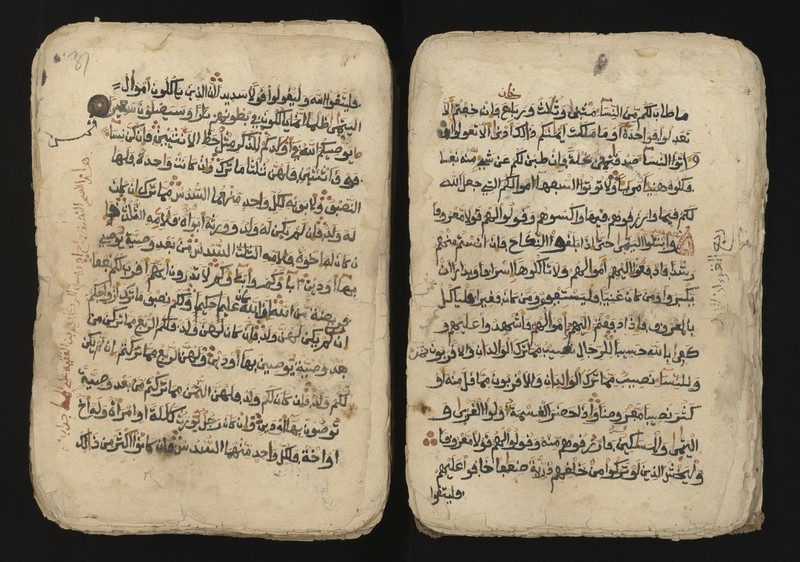 ما طاب لكم من النساء مثنى وثلث وربع فإن خفتم ألا
تعدلوا فواحدة أو ما ملكت أيمنكم ذالك أدنى ألا تعولوا
وءاتوا النساء صدقتهن نحلة فإن طبن لكم عن شيء منه نفسا
فكلوه هنيئا مريئا ولا توتوا السفهاء أموالكم التي جعل الله
لكم قيما وارزقوهم فيها واكسوهم وقولوا لهم قولا معروفا
وابتلوا اليتمى حتى إذا بلغوا النكاح فإن انستم منهم
رشدا فادفعوا إليهم أموالهم ولا تاكلوها إسرافا وبدارا أن
يكبروا ومن كان غنيا فليستعفف ومن كان فقيرا فلياكل
بالمعروف فإذا دفعتم إليهم أموالهم فأشهدوا عليهم و
كفى بالله حسيبا للرجال نصيب مما ترك الوالدان والأقربون
وللنساء نصيب مما ترك الوالدان والأقربون مما قل منه أو
كثر نصيبا مفروضا وإذا حضر القسمة أولوا القربى و
اليتمى والمسكين فارزقوهم منه وقولوا لهم قولا معروفا
وليخش الذين لو تركوا من خلفهم ذرية ضعفا خافوا عليهم
فليتقوا
فليتقوا الله وليقولوا قولا سديدا إن الذين ياكلون أموال
اليتمى ظلما إنما ياكلون في بطونهم نارا وسيصلون سعيرا
يوصيكم الله في أولدكم للذكر مثل حظ الانثيين فإن كن نساء
فوق اثنتين فلهن ثلثا ما ترك وإن كانت واحدة فلها
النصف ولأبويه لكل واحد منهما السدس مما ترك إن كان
له ولد فإن لم يكن له ولد وورثه أبواه فلأمه الثلث فإ
ن كان له إخوة فلأمه السدس من بعد وصية يوصي
بها أو دين ءاباؤكم وأبناؤكم لا تدرون أيهم أقرب لكم نفعا
فريضة من الله إن الله كان عليما حكيما ولكم نصف ما ترك أزواجكم
إن لم يكن لهن ولد فإن كان لهن ولد فلكم الربع مما تركن من
بعد وصية يوصين بها أو دين ولهن الربع مما تركتم إن لم يكن
لكم ولد فإن كان لكم ولد فلهن الثمن مما تركتم من بعد وصية
توصون بها أو دين وإن كان رجل يورث كللة أو امرأة وله أخ
أو اخت فلكل واحد منهما السدس فإن كانوا أكثر من ذالك